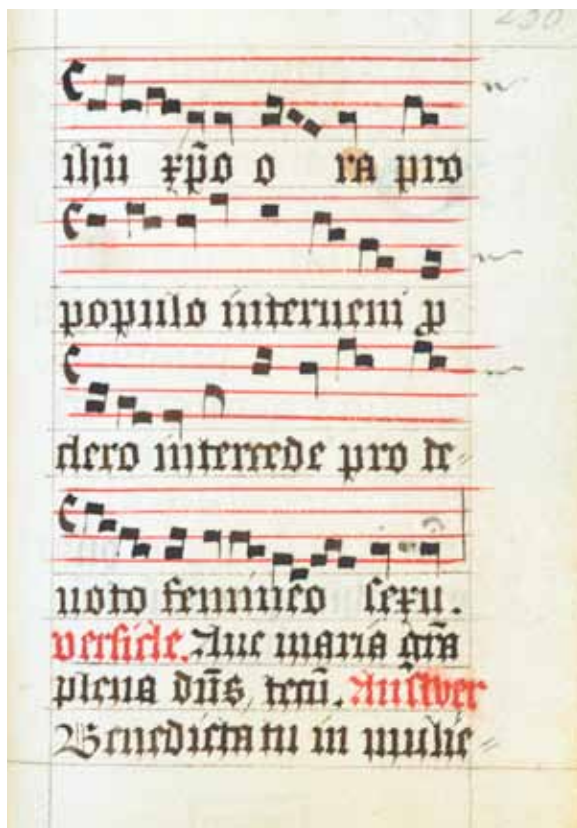 230
ihũ xp̃o o ra pro
populo interueni ꝓ
clero intercede pro de⸗
uoto femineo sexu.
versicle. Aue maria gr̃a
plena dñs tecũ. Answer
Benedicta tu in mulie⸗